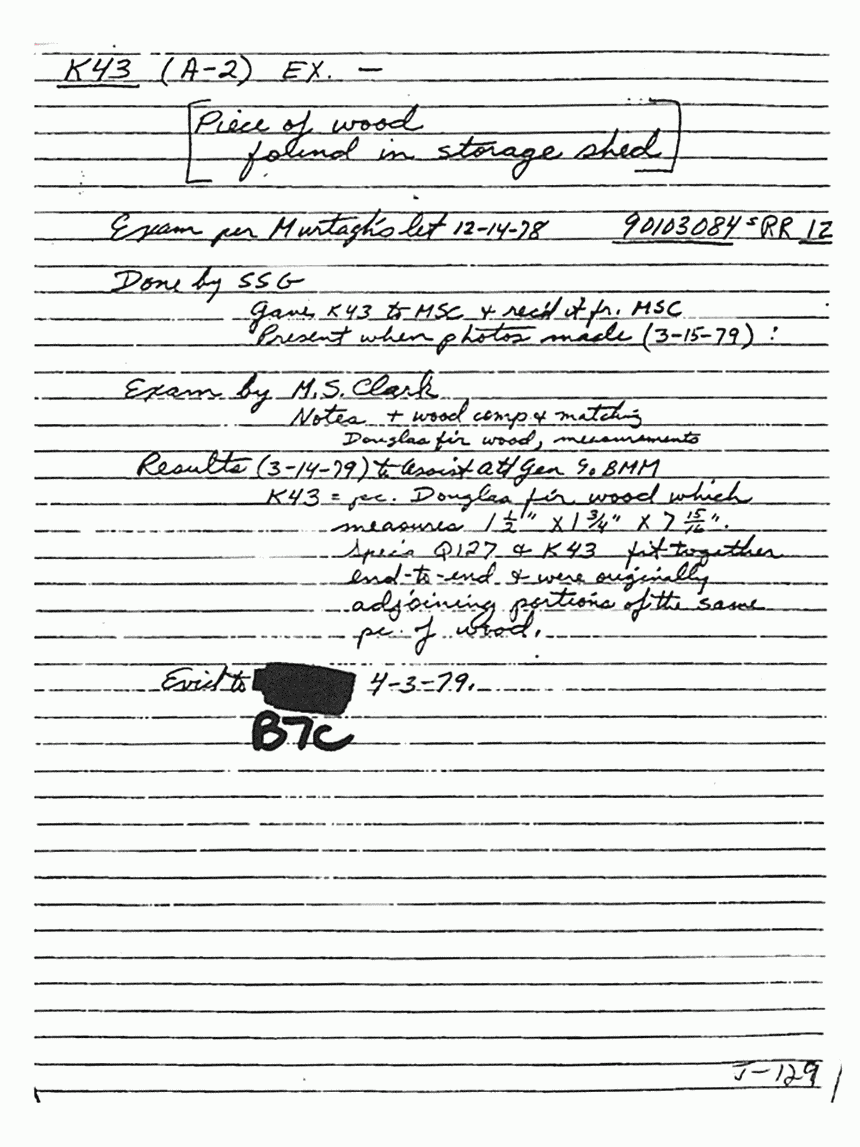 K43 (A-2) EX. —
Piece of wood
found in storage shed
Exam per Murtagh's let 12-14-78 90103084 S RR 12
Done by SSG
Gave K43 to MSC & rec'd it fr. MSC
Present when photos made (3-15-79) :
Exam by M.S. Clark
Notes + wood comp & matching
Douglas fir wood, measurements
Results (3-14-79) to Assist Att Gen BMM
K43 = pc. Douglas fir wood which
measures 1 1/2" X 1 3/4" X 7 15/16".
Spec's Q127 & K43 fit together
end-to-end & were originally
adjoining portions of the same
pc. of wood.
Evid to 4-3-79.
B7C
J-129